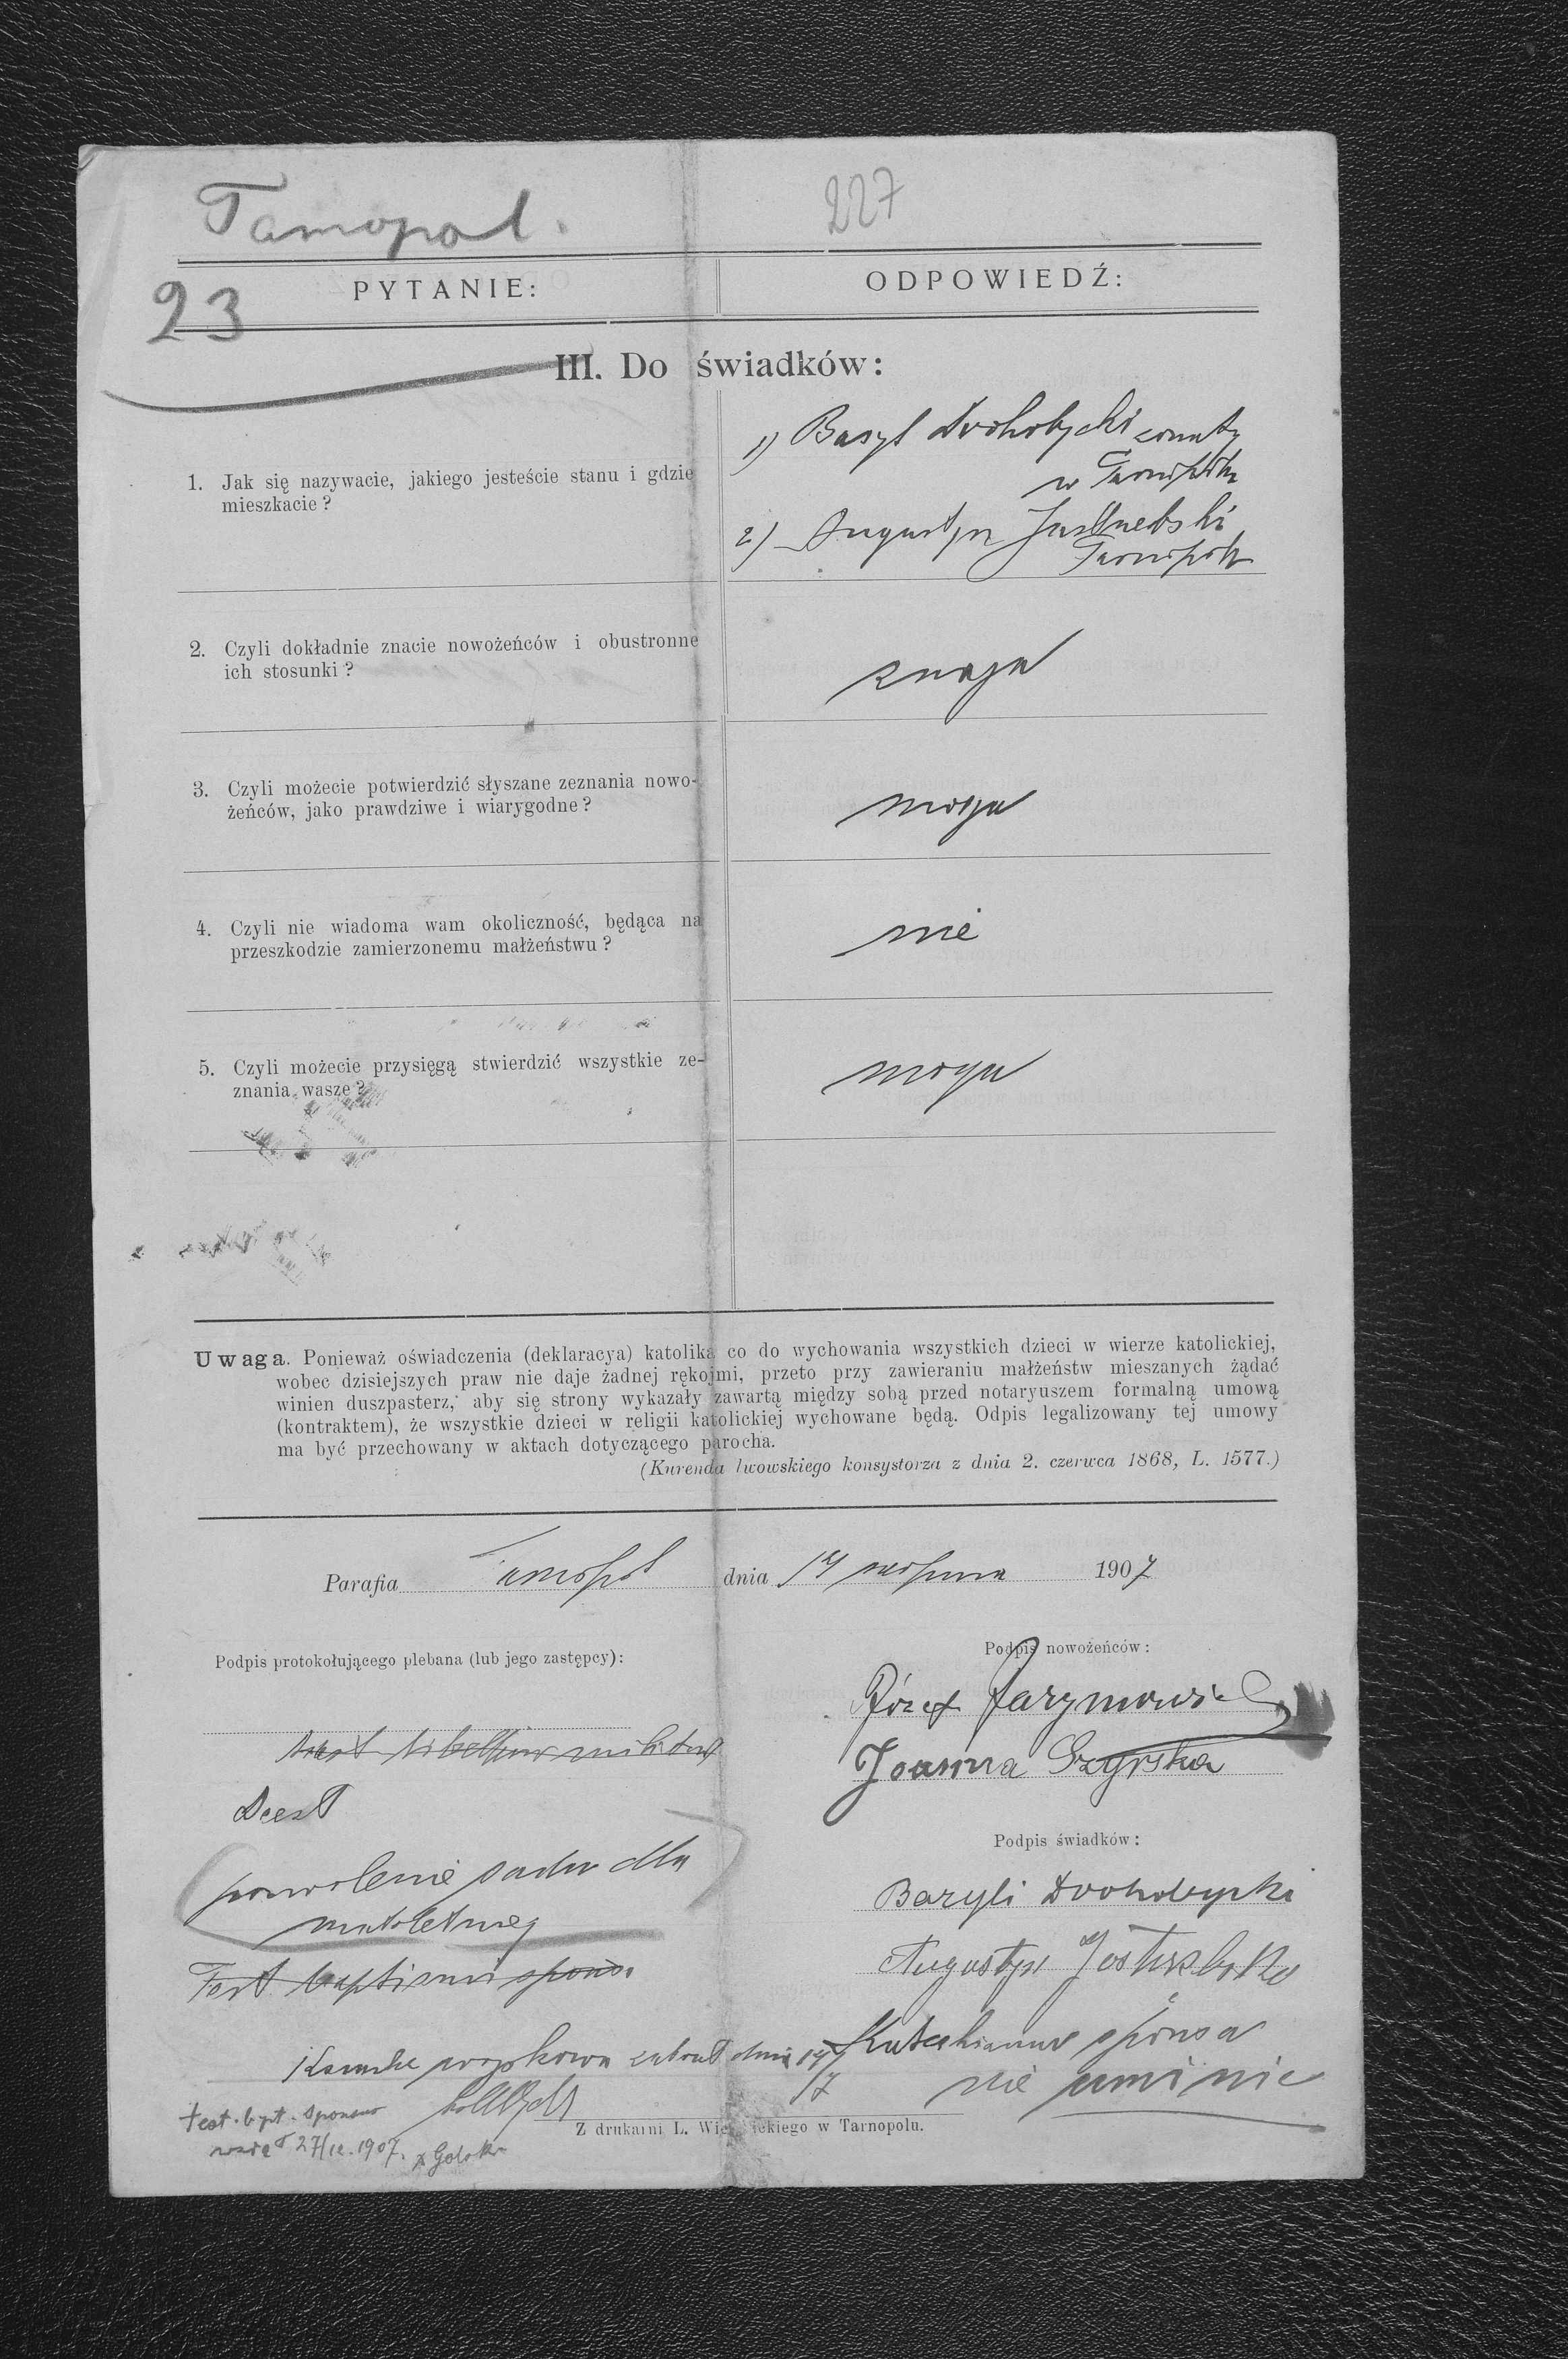 Tarnopol.
227
23
PYTANIE:
ODPOWIEDŹ:
III. Do świadków:
1. Jak się nazywacie, jakiego jesteście stanu i gdzie
mieszkacie?
1) Bazyl Drohobycki żonaty
w Tarnopolu
2) Augustyn
Tarnopolu
2. Czyli dokładnie znacie nowożeńców i obustronne
ich stosunki?
znają
3. Czyli możecie potwierdzić słyszane zeznania nowo-
żeńców, jako prawdziwe i wiarygodne?
mogą
4. Czyli nie wiadoma wam okoliczność, będąca na
przeszkodzie zamierzonemu małżeństwu?
nie
5. Czyli możecie przysięgą stwierdzić wszystkie ze-
znania wasze?
mogą
Uwaga. Ponieważ oświadczenia (deklaracya) katolika co do wychowania wszystkich dzieci w wierze katolickiej,
wobec dzisiejszych praw nie daje żadnej rękojmi, przeto przy zawieraniu małżeństw mieszanych żądać
winien duszpasterz, aby się strony wykazały zawartą między sobą przed notaryuszem formalną umową
(kontraktem), że wszystkie dzieci w religii katolickiej wychowane będą. Odpis legalizowany tej umowy
ma być przechowany w aktach dotyczącego parocha.
(Kurenda lwowskiego konsystorza z dnia 2. czerwca 1868, L. 1577.)
Parafia Tarnopol dnia sierpnia 1907
Podpis protokołującego plebana (lub jego zastępcy):
Podpis nowożeńców:
Józef
Joanna
Deest
Podpis świadków:
pozwolenie sądu dla
małoletniej
Bazyli Drohobycki
Augustyn
Test baptismi spons.
zabrał dnia
sponsa
nie umi nic
test. bapt. sponsae
wziął 27/IX. 1907.
Z drukarni L. Wierzbickiego w Tarnopolu.